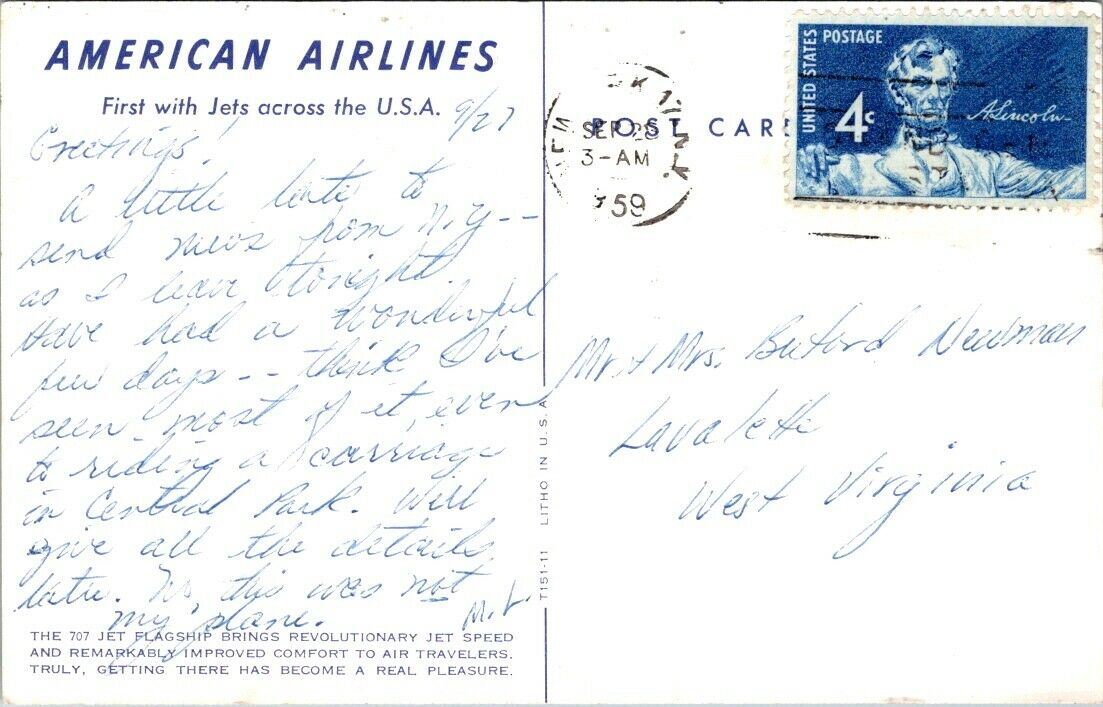 AMERICAN AIRLINES
First with Jets across the U.S.A.
9/27
Greetings!
A little late to
send news from N.Y --
as I leave tonight.
Have had a wonderful
few days -- think I've
seen most of it, even
to riding a carriage
in Central Park. Will
give all the details
later. No this was not
my plane.
M.L.
THE 707 JET FLAGSHIP BRINGS REVOLUTIONARY JET SPEED
AND REMARKABLY IMPROVED COMFORT TO AIR TRAVELERS.
TRULY, GETTING THERE HAS BECOME A REAL PLEASURE.
T151-11 LITHO IN U.S.A.
POST CARD
SEP 28
3-AM
59
UNITED STATES POSTAGE
4c
A. Lincoln
Mr. & Mrs. Buford Newman
Lavalette
West Virginia